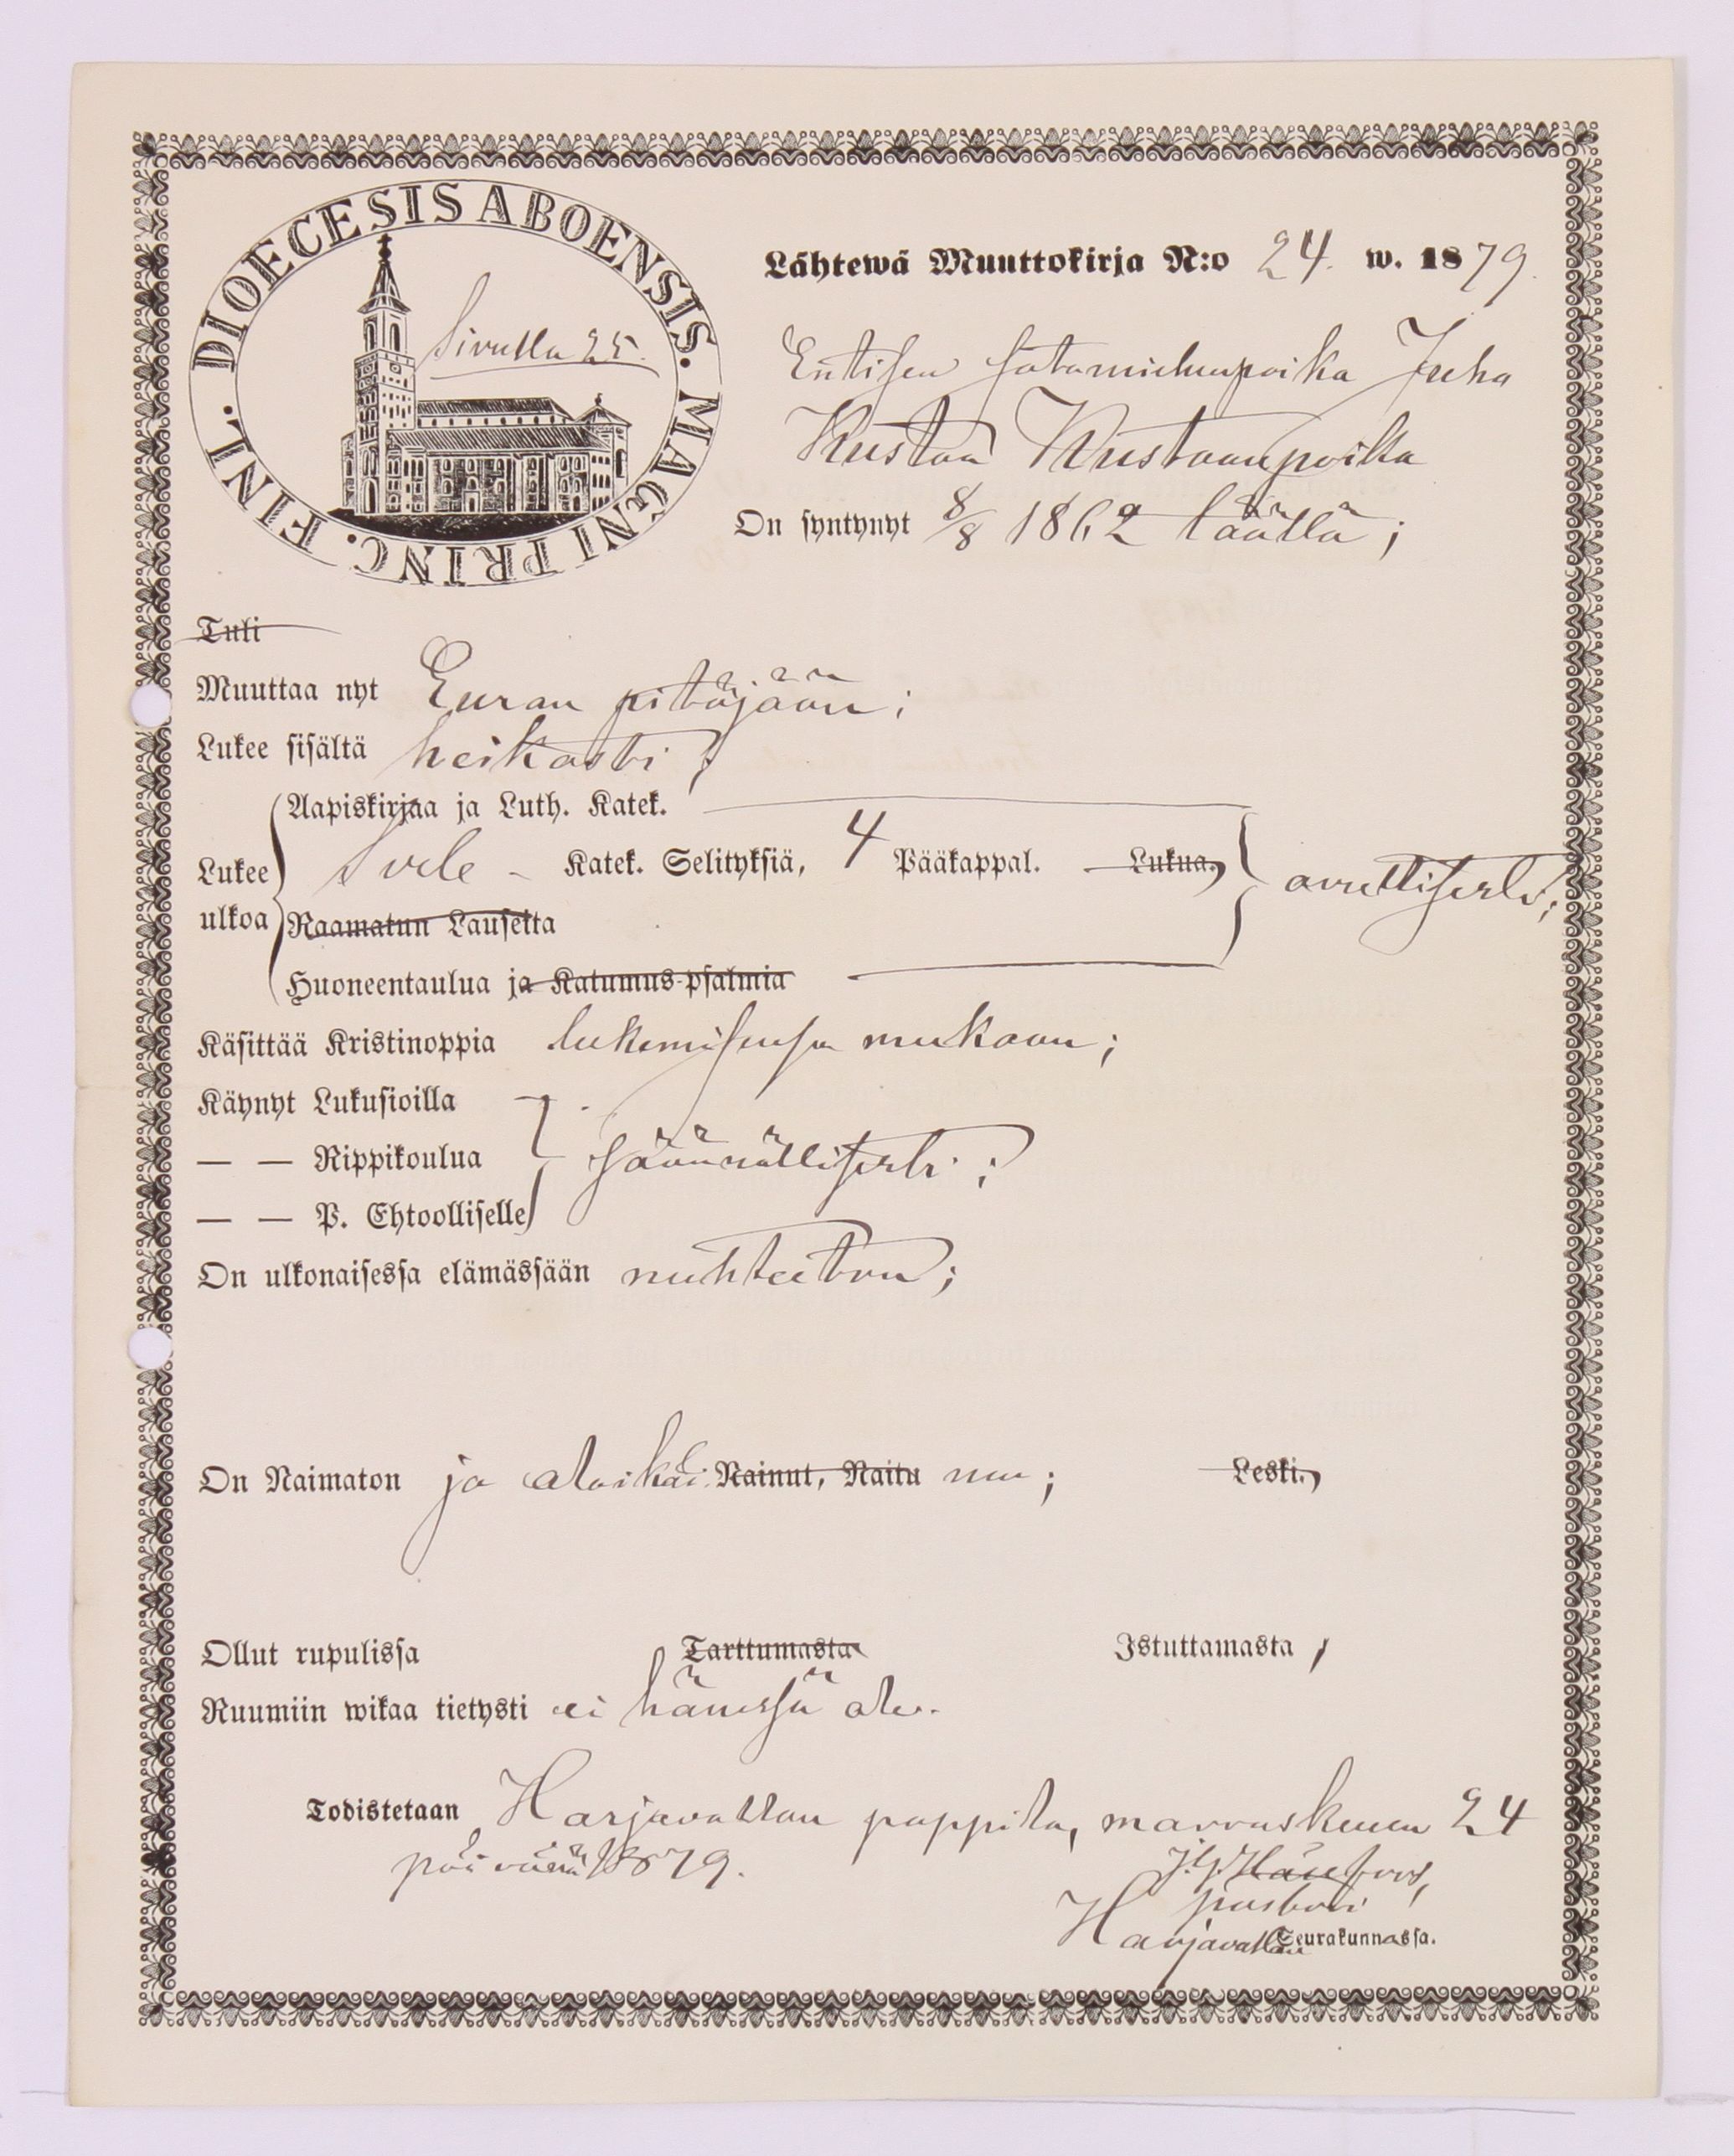 DIOECESIS ABOENSIS. MAGNI PRINC. FINL.
Sivulla 25.
Lähtewä Muuttokirja N:o 24. w. 1879.
Entisen sotamiehenpoika Juha
Kustaa Kustaanpoika
On syntynyt 8/8 1862 täällä;
Tuli
Muuttaa nyt Euran pitäjään;
Lukee sisältä heikosti;
Aapiskirjaa ja Luth. Katek.
Lukee ulkoa Svele - Katek. Selityksiä, 4 Pääkappal. Lukua, avullisesti;
Raamatun Lausetta
Huoneentaulua ja Katumus-psalmia
Käsittää Kristinoppia lukemisensa mukaan;
Käynyt Lukusioilla
— — Rippikoulua säännöllisesti;
— — P. Ehtoolliselle
On ulkonaisessa elämässään nuhteeton;
On Naimaton ja alaikäi Nainut, Naitu nen; Leski,
Ollut rupulissa Tarttumasta Istuttamasta,
Ruumiin wikaa tietysti ei hänessä ole.
Todistetaan Harjavallan pappila, marraskuun 24
päivänä 1879.
pastori
Harjavallan Seurakunnassa.